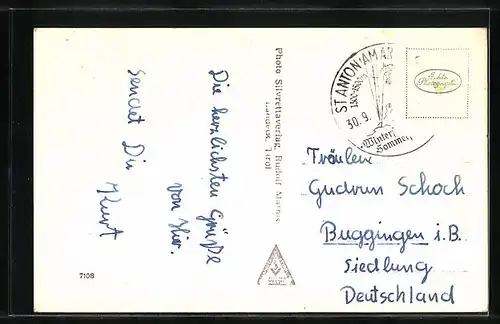 Die herzlichsten Grüße
von hier.
Sendet Dir
Kurt
7108
Photo Silvrettaverlag, Rudolf
Landeck, Tirol
ST. ANTON AM AR
1300-
30.9.
Winter
Sommer
Echte
Photographie
Fräulein
Gudrun Schoch
Buggingen i.B.
Siedlung
Deutschland